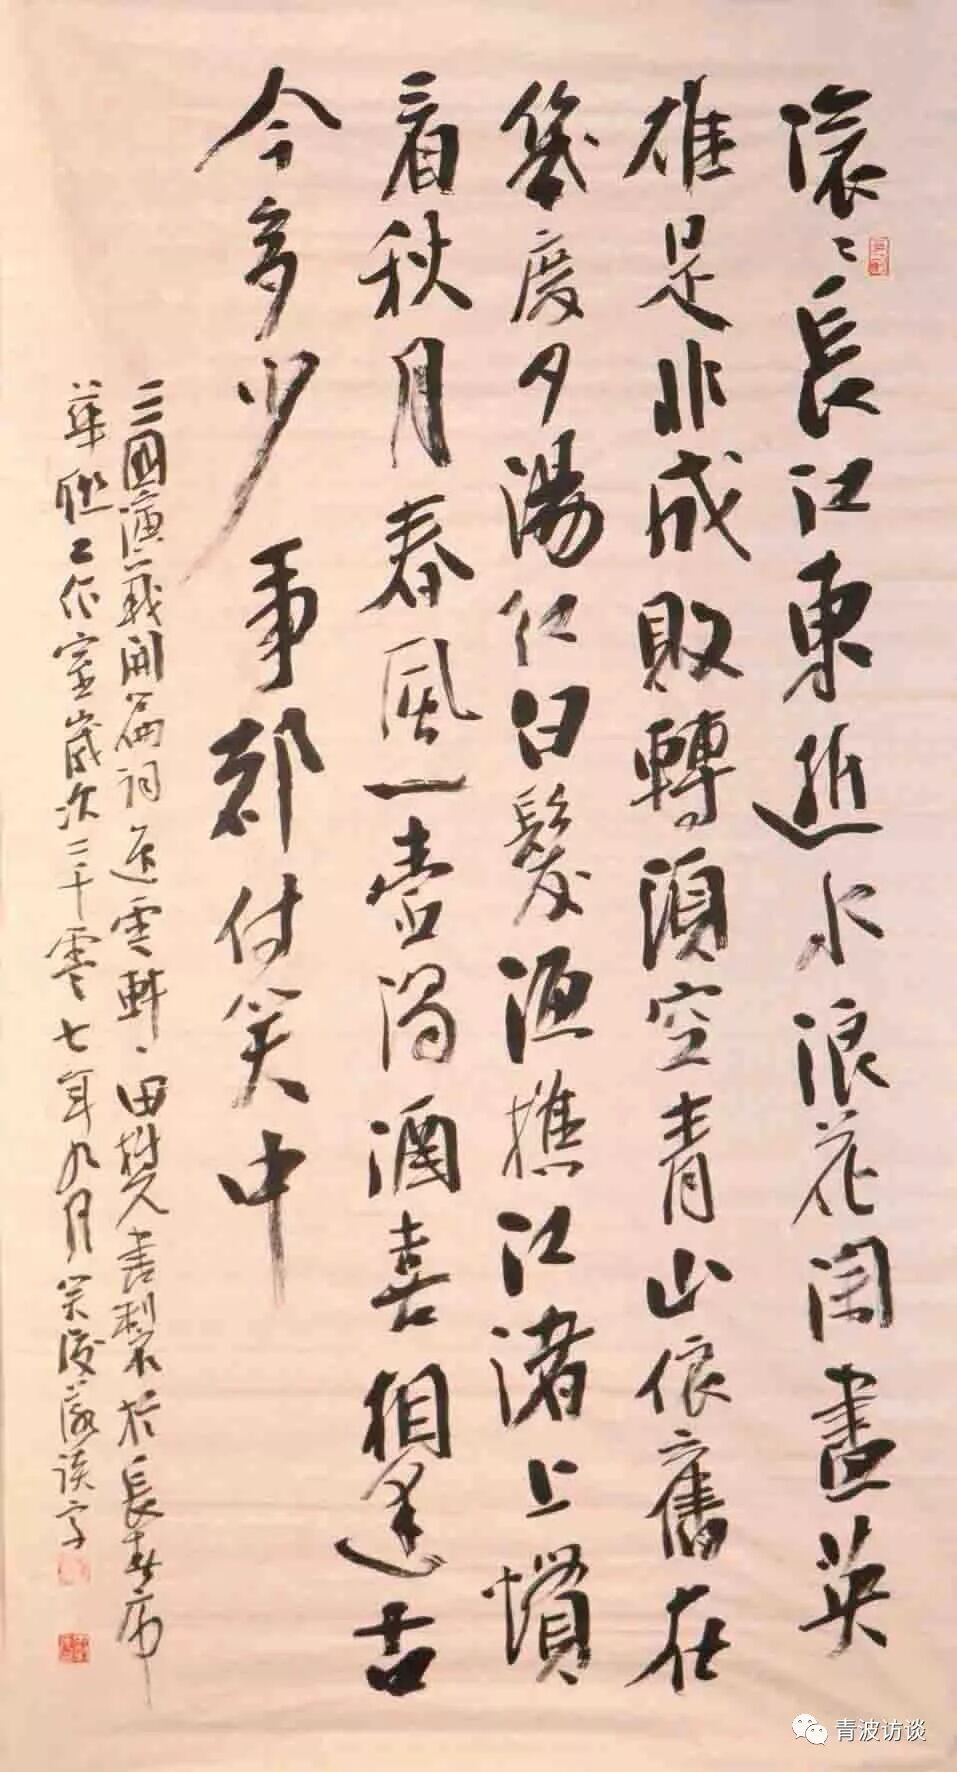 滾〻長江東逝水浪花淘盡英
雄是非成敗轉頭空青山依舊在
幾度夕陽紅白髮漁樵江渚上慣
看秋月春風一壺濁酒喜相逢古
今多少事都付笑中
三國演義開篇詞 雲軒田樹人書製於長春市
華 工作室歲次二千零七年九月
青波访谈